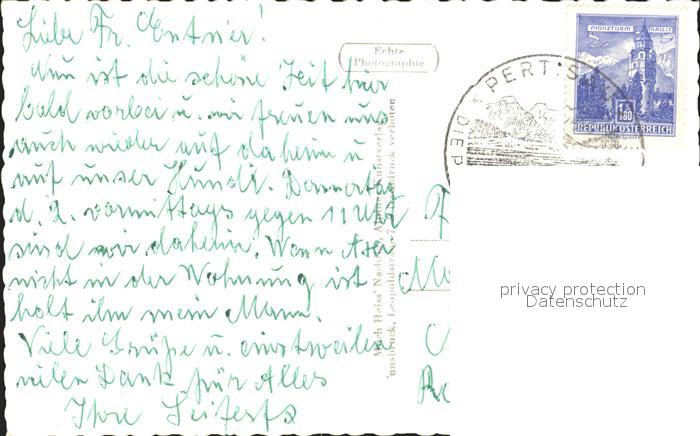 Liebe Fr. Entner!
Nun ist die schöne Zeit hier
bald vorbei u. wir freuen uns
auch wieder auf daheim u.
auf unser Hundl. Donnerstag
d. 2. vormittags gegen 11 Uhr
sind wir daheim. Wenn
nicht in der Wohnung ist
holt ihn mein Mann.
Viele Grüße u. einstweilen
vielen Dank für Alles
Ihre Seiferts
Echte
Photographie
Much Heiss' Nachf., Kunstverlag
Innsbruck, Leopoldstraße Nachdruck verboten
MÜNZTURM HALL I. T.
S 1.80
REPUBLIK ÖSTERREICH
PERTISAU
DIEP
privacy protection
Datenschutz